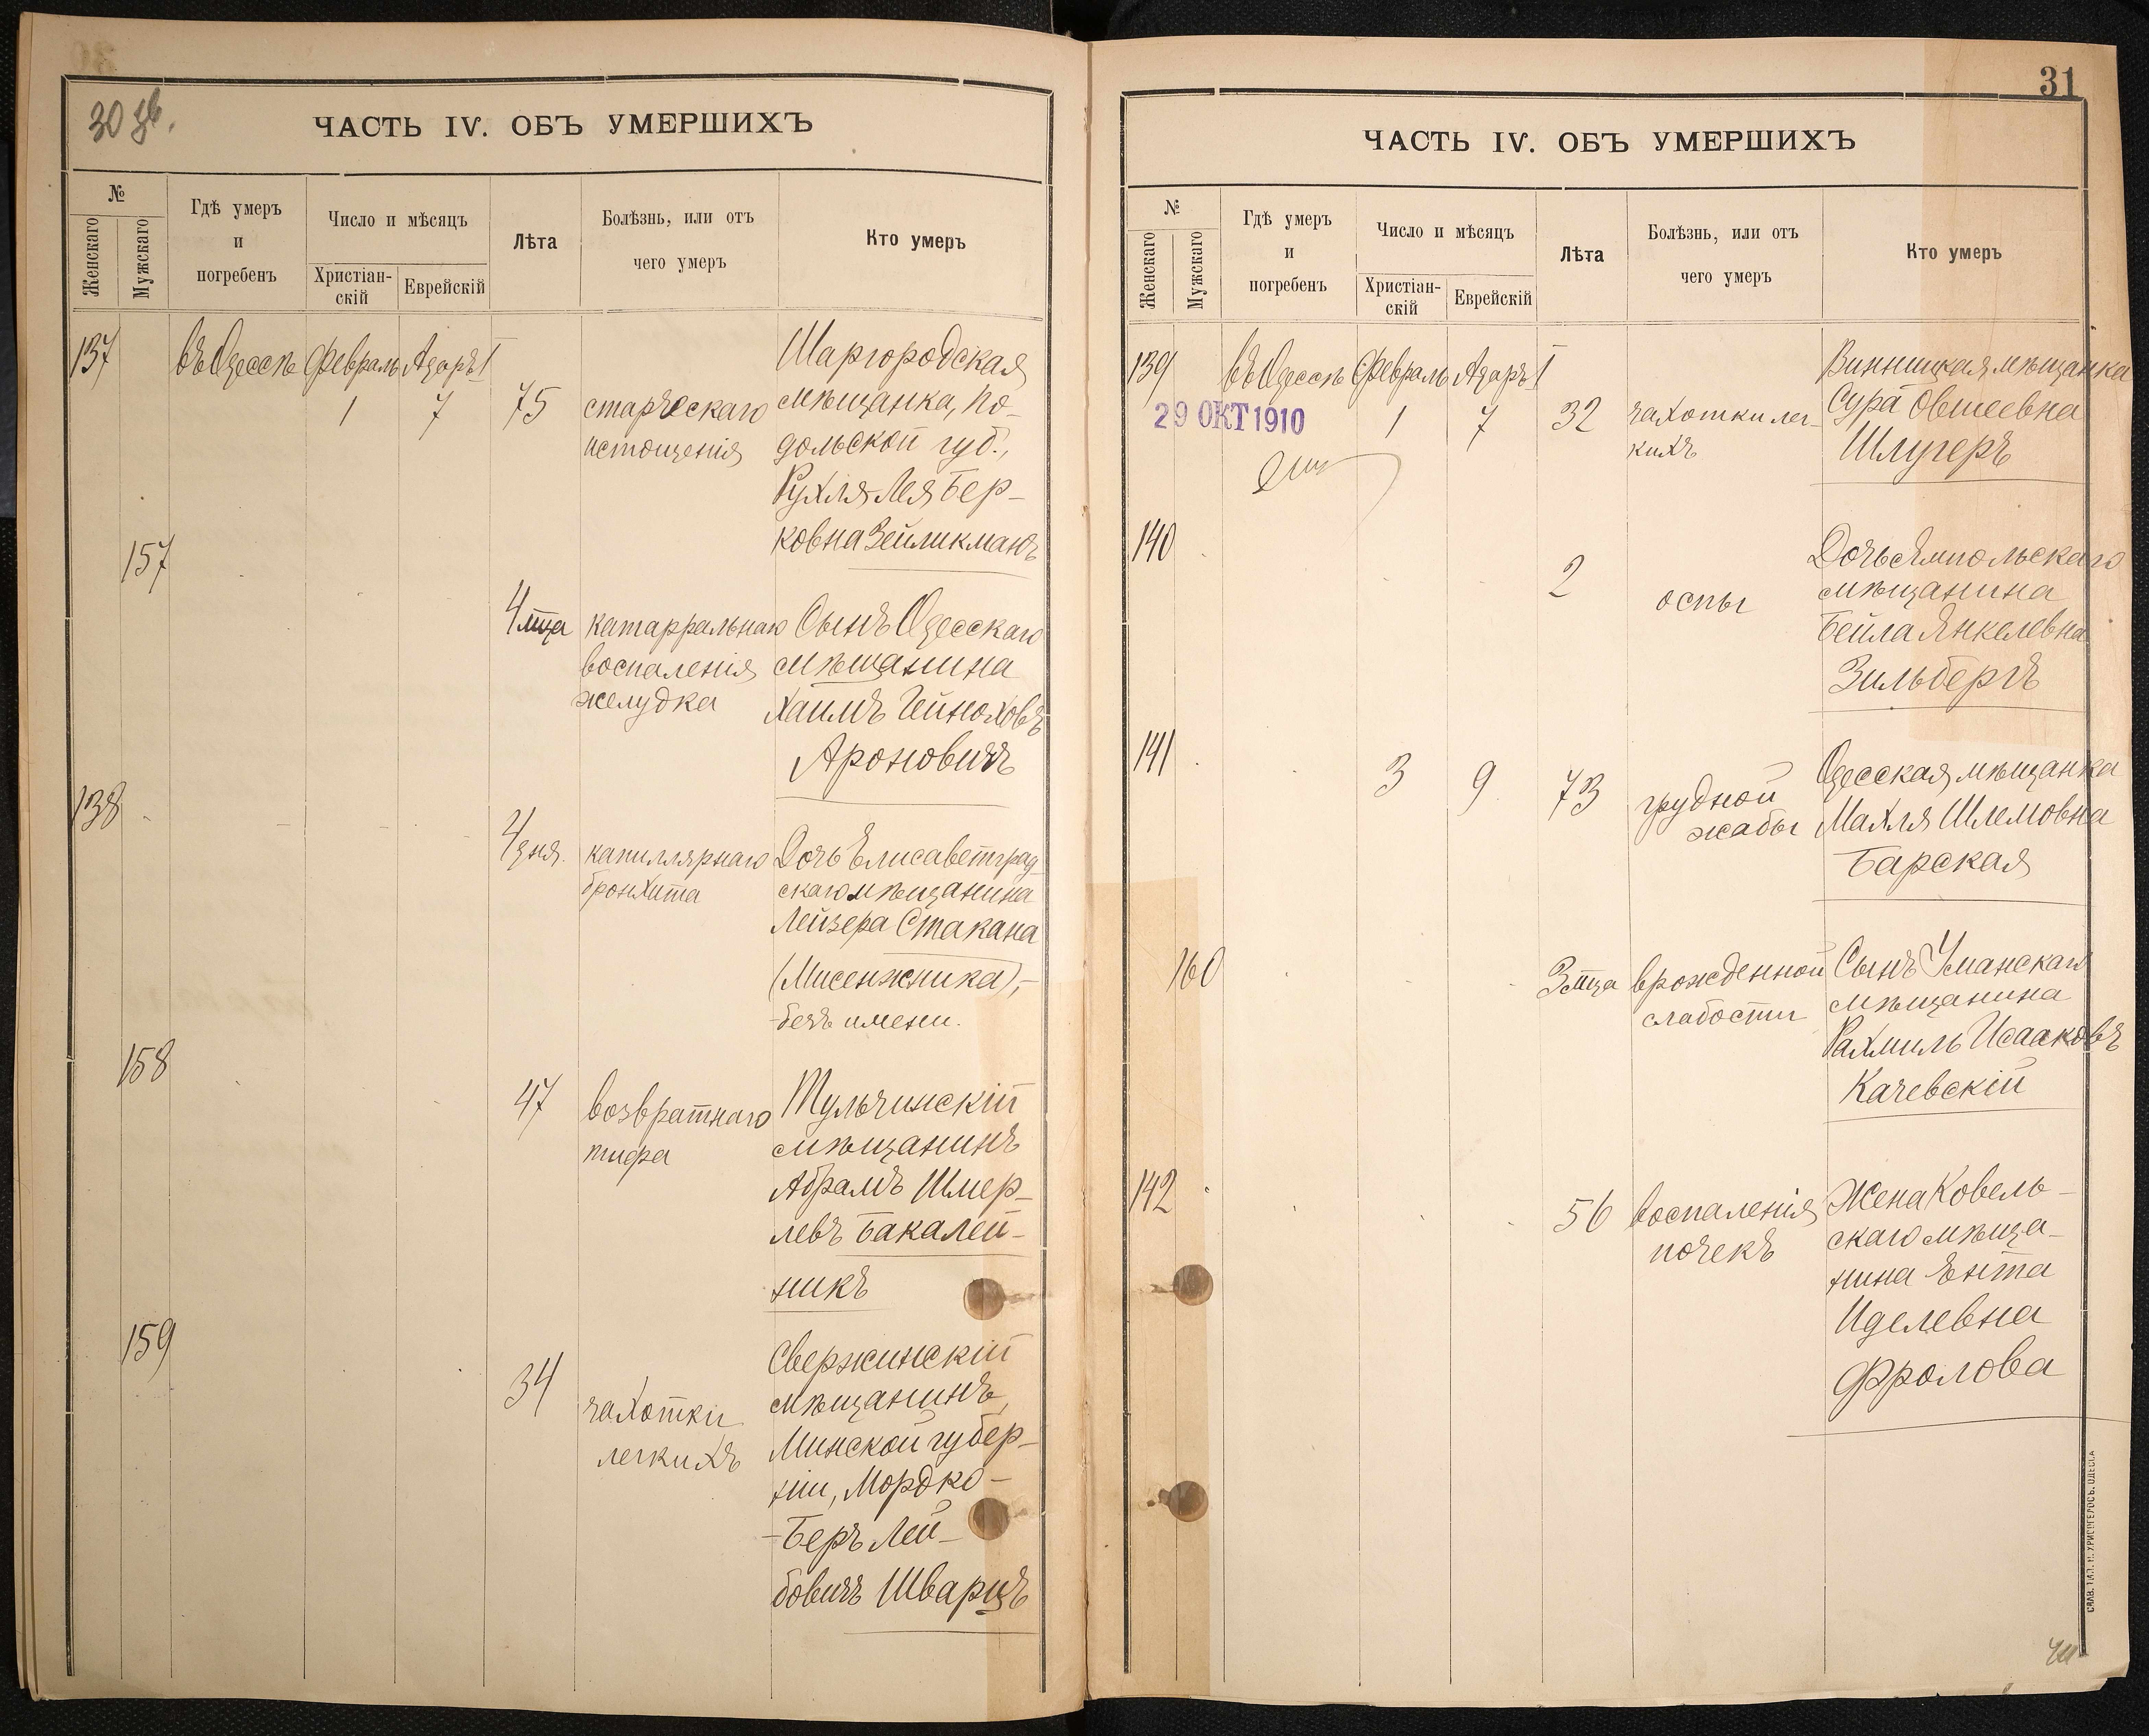 30 зв.
ЧАСТЬ IV. ОБЪ УМЕРШИХЪ
№
Женскаго
Мужскаго
Гдѣ умеръ
и
погребенъ
Число и мѣсяцъ
Христіан-
скій
Еврейскій
Лѣта
Болѣзнь, или отъ
чего умеръ
Кто умеръ
137
въ Одессѣ
Февраль
1
Адаръ I
7
75
старческаго
истощенія
Шаргородская
мѣщанка, По-
дольской губ.,
Рухля-Лея Бер-
ковна Зейликманъ
157
4 мца
катарральнаго
воспаленія
желудка
Сынъ Одесскаго
мѣщанина
Хаимъ Гейноховъ
Ароновичъ
138
4 дня.
капиллярнаго
бронхита
Дочь Елисаветград
скаго мѣщанина
Лейзера Стакана
(Мисенжника),-
безъ имени.
158
47
возвратнаго
тифа
Тульчинскій
мѣщанинъ
Абрамъ Шмер-
левъ Бакалей-
никъ
159
34
чахотки
легкихъ
Свержинскій
мѣщанинъ,
Минской губер-
ніи, Мордко-
-Беръ Лей-
бовичъ Шварцъ
31
ЧАСТЬ IV. ОБЪ УМЕРШИХЪ
№
Женскаго
Мужскаго
Гдѣ умеръ
и
погребенъ
Число и мѣсяцъ
Христіан-
скій
Еврейскій
Лѣта
Болѣзнь, или отъ
чего умеръ
Кто умеръ
139
въ Одессѣ
Февраль
1
Адаръ I
7
32
чахотки лег-
кихъ
Винницкая мѣщанка
Сура Овшеевна
Шлугеръ
29 ОКТ 1910
140
2
оспы
Дочь Ямпольскаго
мѣщанина
Бейла Янкелевна
Зильбергъ
141
3
9
73
грудной
жабы
Одесская мѣщанка
Махля Шлемовна
Барская
160
3 мца
врожденной
слабости
Сынъ Уманскаго
мѣщанина
Рахмиль Исааковъ
Качевскій
142
56
воспаленія
почекъ
Жена Ковель-
скаго мѣща-
нина Ента
Иделевна
Фролова
СЛАВ. ТИП. Н. ХРИСОГЕЛОСЪ. ОДЕССА